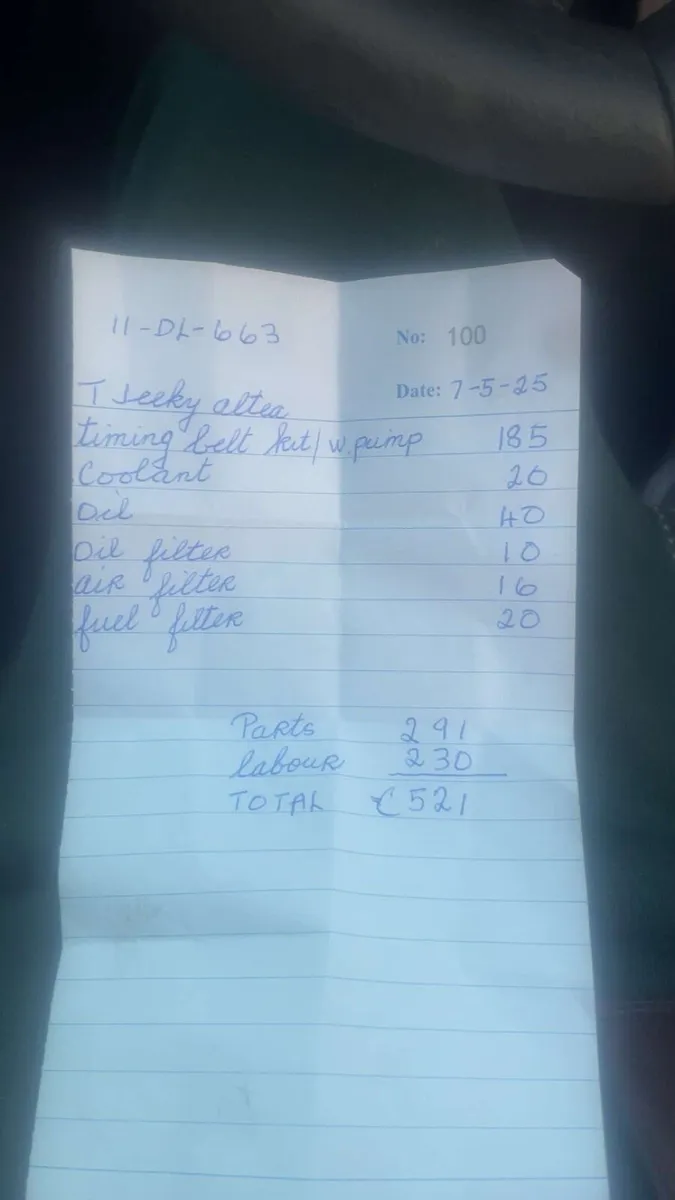 11-DL-663
No: 100
Date: 7-5-25
altea
timing belt kit/w.pump 185
Coolant 20
Oil 40
Oil filter 10
air filter 16
fuel filter 20
Parts 291
labour 230
TOTAL €521